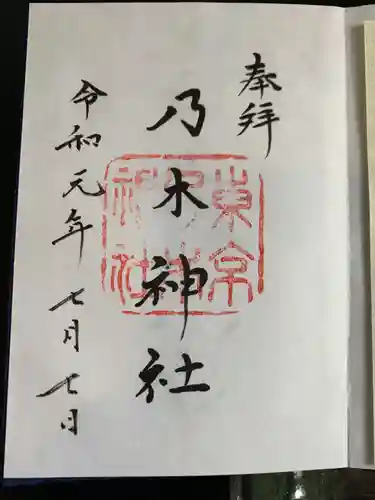 奉拝
乃木神社
令和元年七月七日
東京
乃木
神社